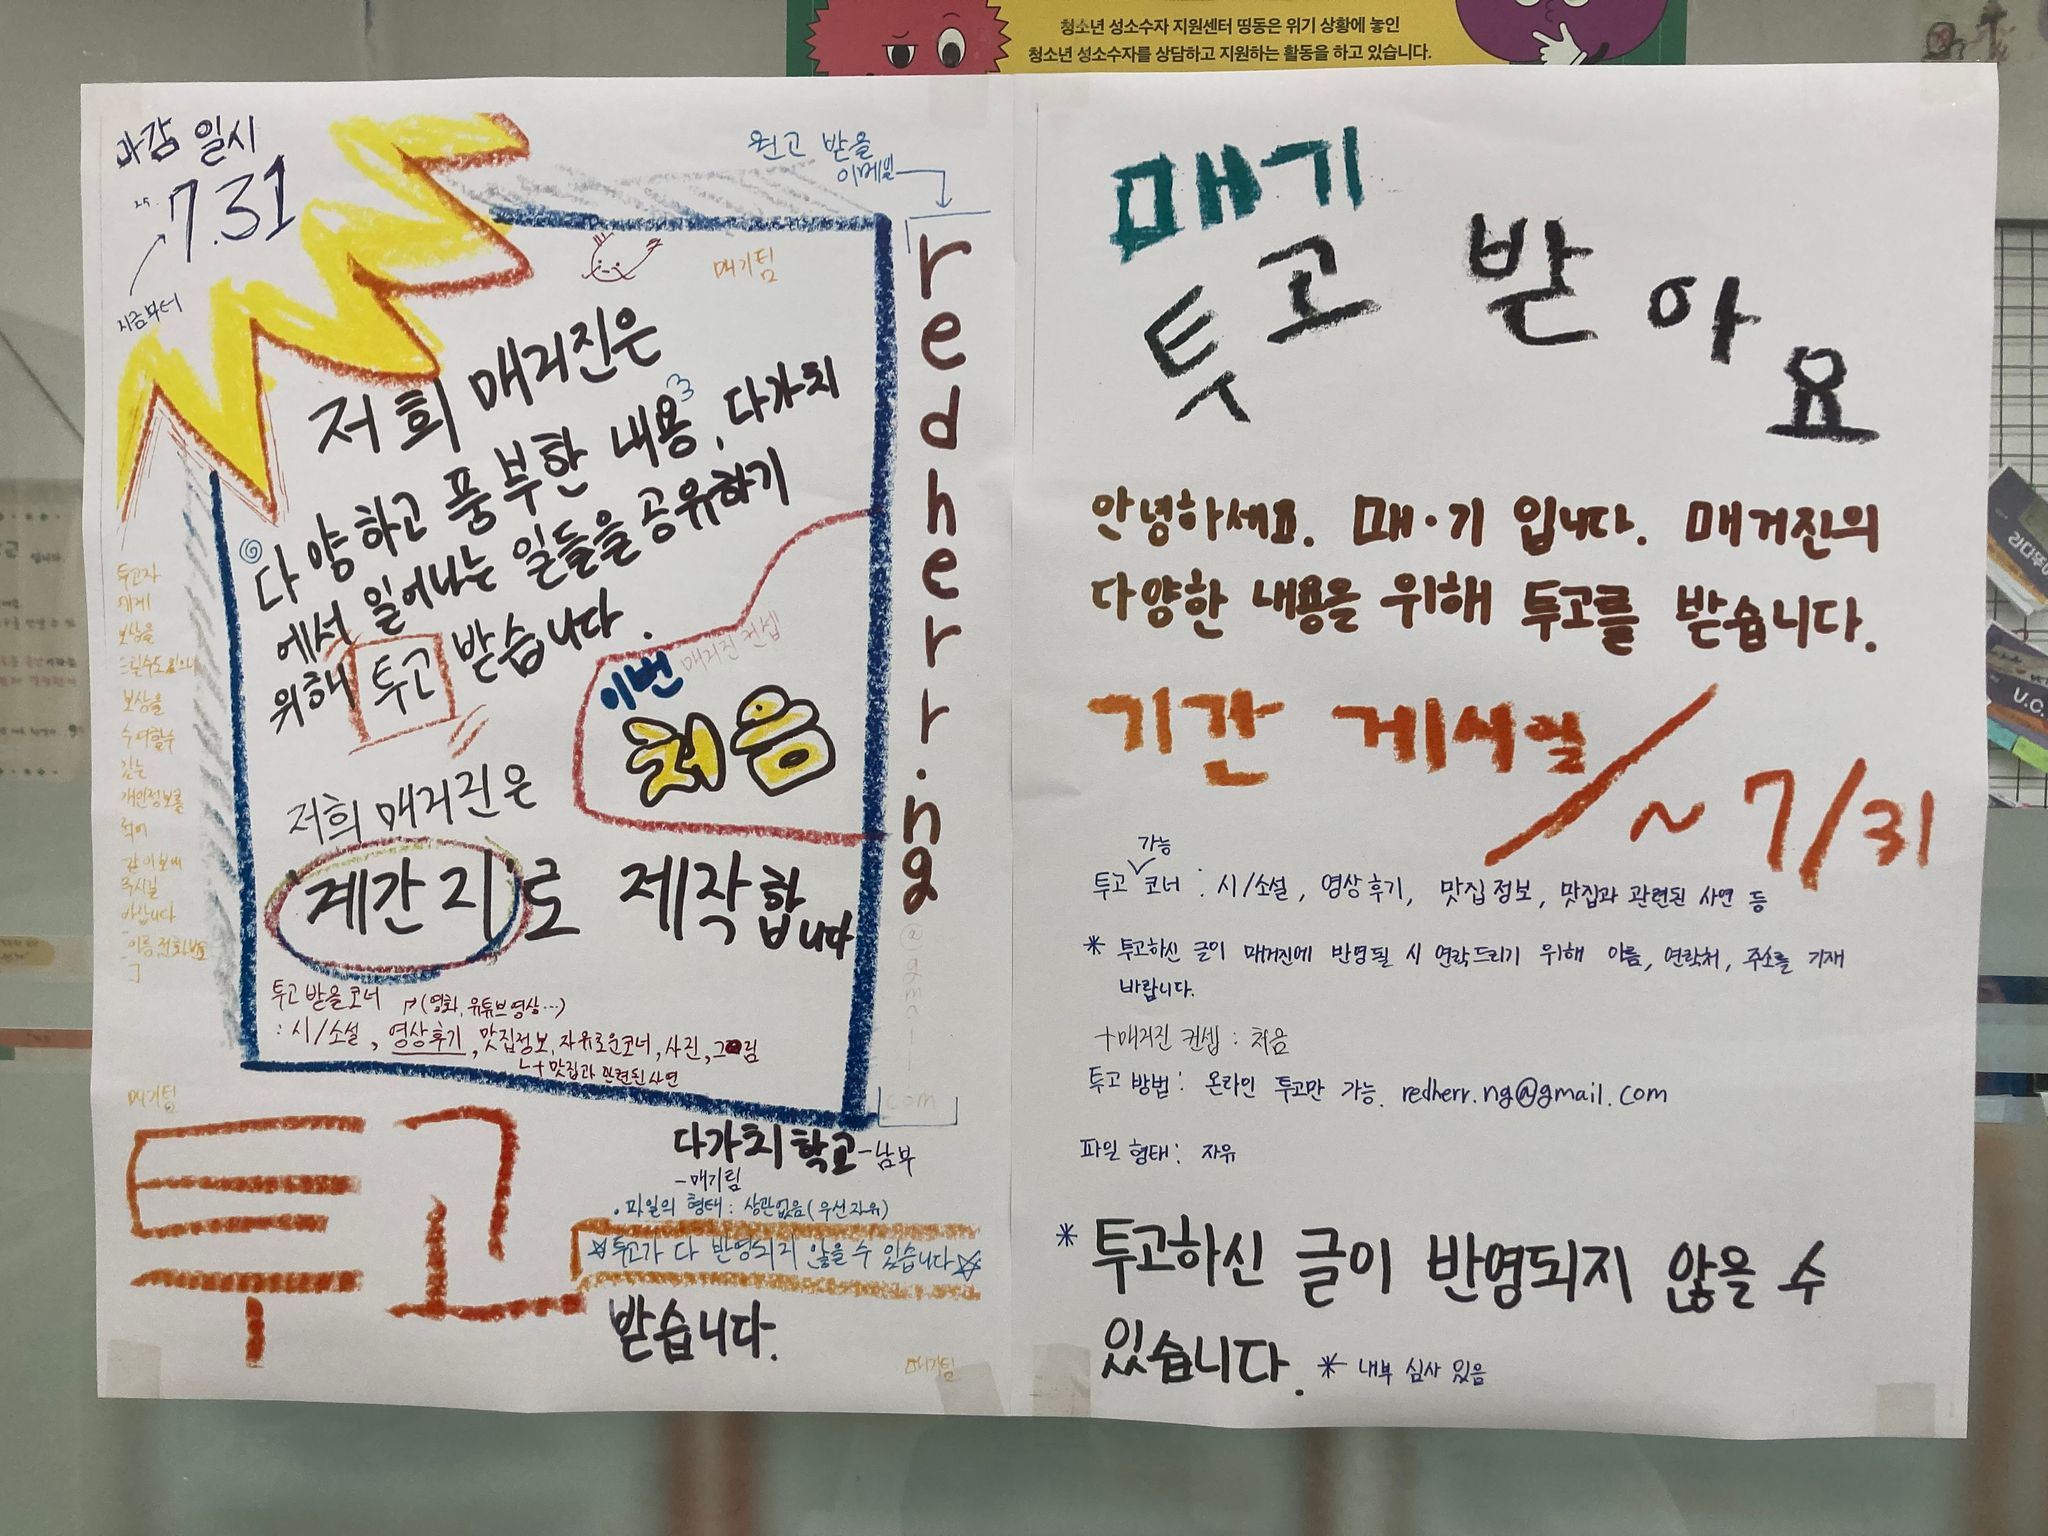 청소년 성소수자 지원센터 띵동은 위기 상황에 놓인
청소년 성소수자를 상담하고 지원하는 활동을 하고 있습니다.
마감 일시
25. 7.31
지금부터
원고 받을
이메일
redherr.ng
@gmail.
com
매기팀
저희 매거진은
다양하고 풍부한 내용, 다가치
에서 일어나는 일들을 공유하기
위해 투고 받습니다.
이번 매거진 컨셉
처음
저희 매거진은
계간지로 제작합니다
투고 받을 코너 (영화, 유튜브 영상...)
: 시/소설, 영상후기, 맛집정보, 자유로운코너, 사진, 그림
+ 맛집과 관련된 사연
투고자
에게
보상을
드릴수도 있으니
보상을
수여할수
있는
개인정보를
적어
같이 보내
주시길
바랍니다
이름, 전화번호
매기팀
투고
다가치학교-남부
-매기팀
. 파일의 형태: 상관없음(우선자유)
☆투고가 다 반영되지 않을 수 있습니다☆
받습니다.
매기팀
매기
투고 받아요
안녕하세요. 매·기 입니다. 매거진의
다양한 내용을 위해 투고를 받습니다.
기간 게시일 / ~ 7/31
투고 가능 코너 : 시/소설, 영상후기, 맛집정보, 맛집과 관련된 사연 등
* 투고하신 글이 매거진에 반영될 시 연락드리기 위해 이름, 연락처, 주소를 기재
바랍니다.
+매거진 컨셉 : 처음
투고 방법 : 온라인 투고만 가능. redherr.ng@gmail.com
파일 형태 : 자유
* 투고하신 글이 반영되지 않을 수
있습니다. * 내부 심사 있음
U.C.